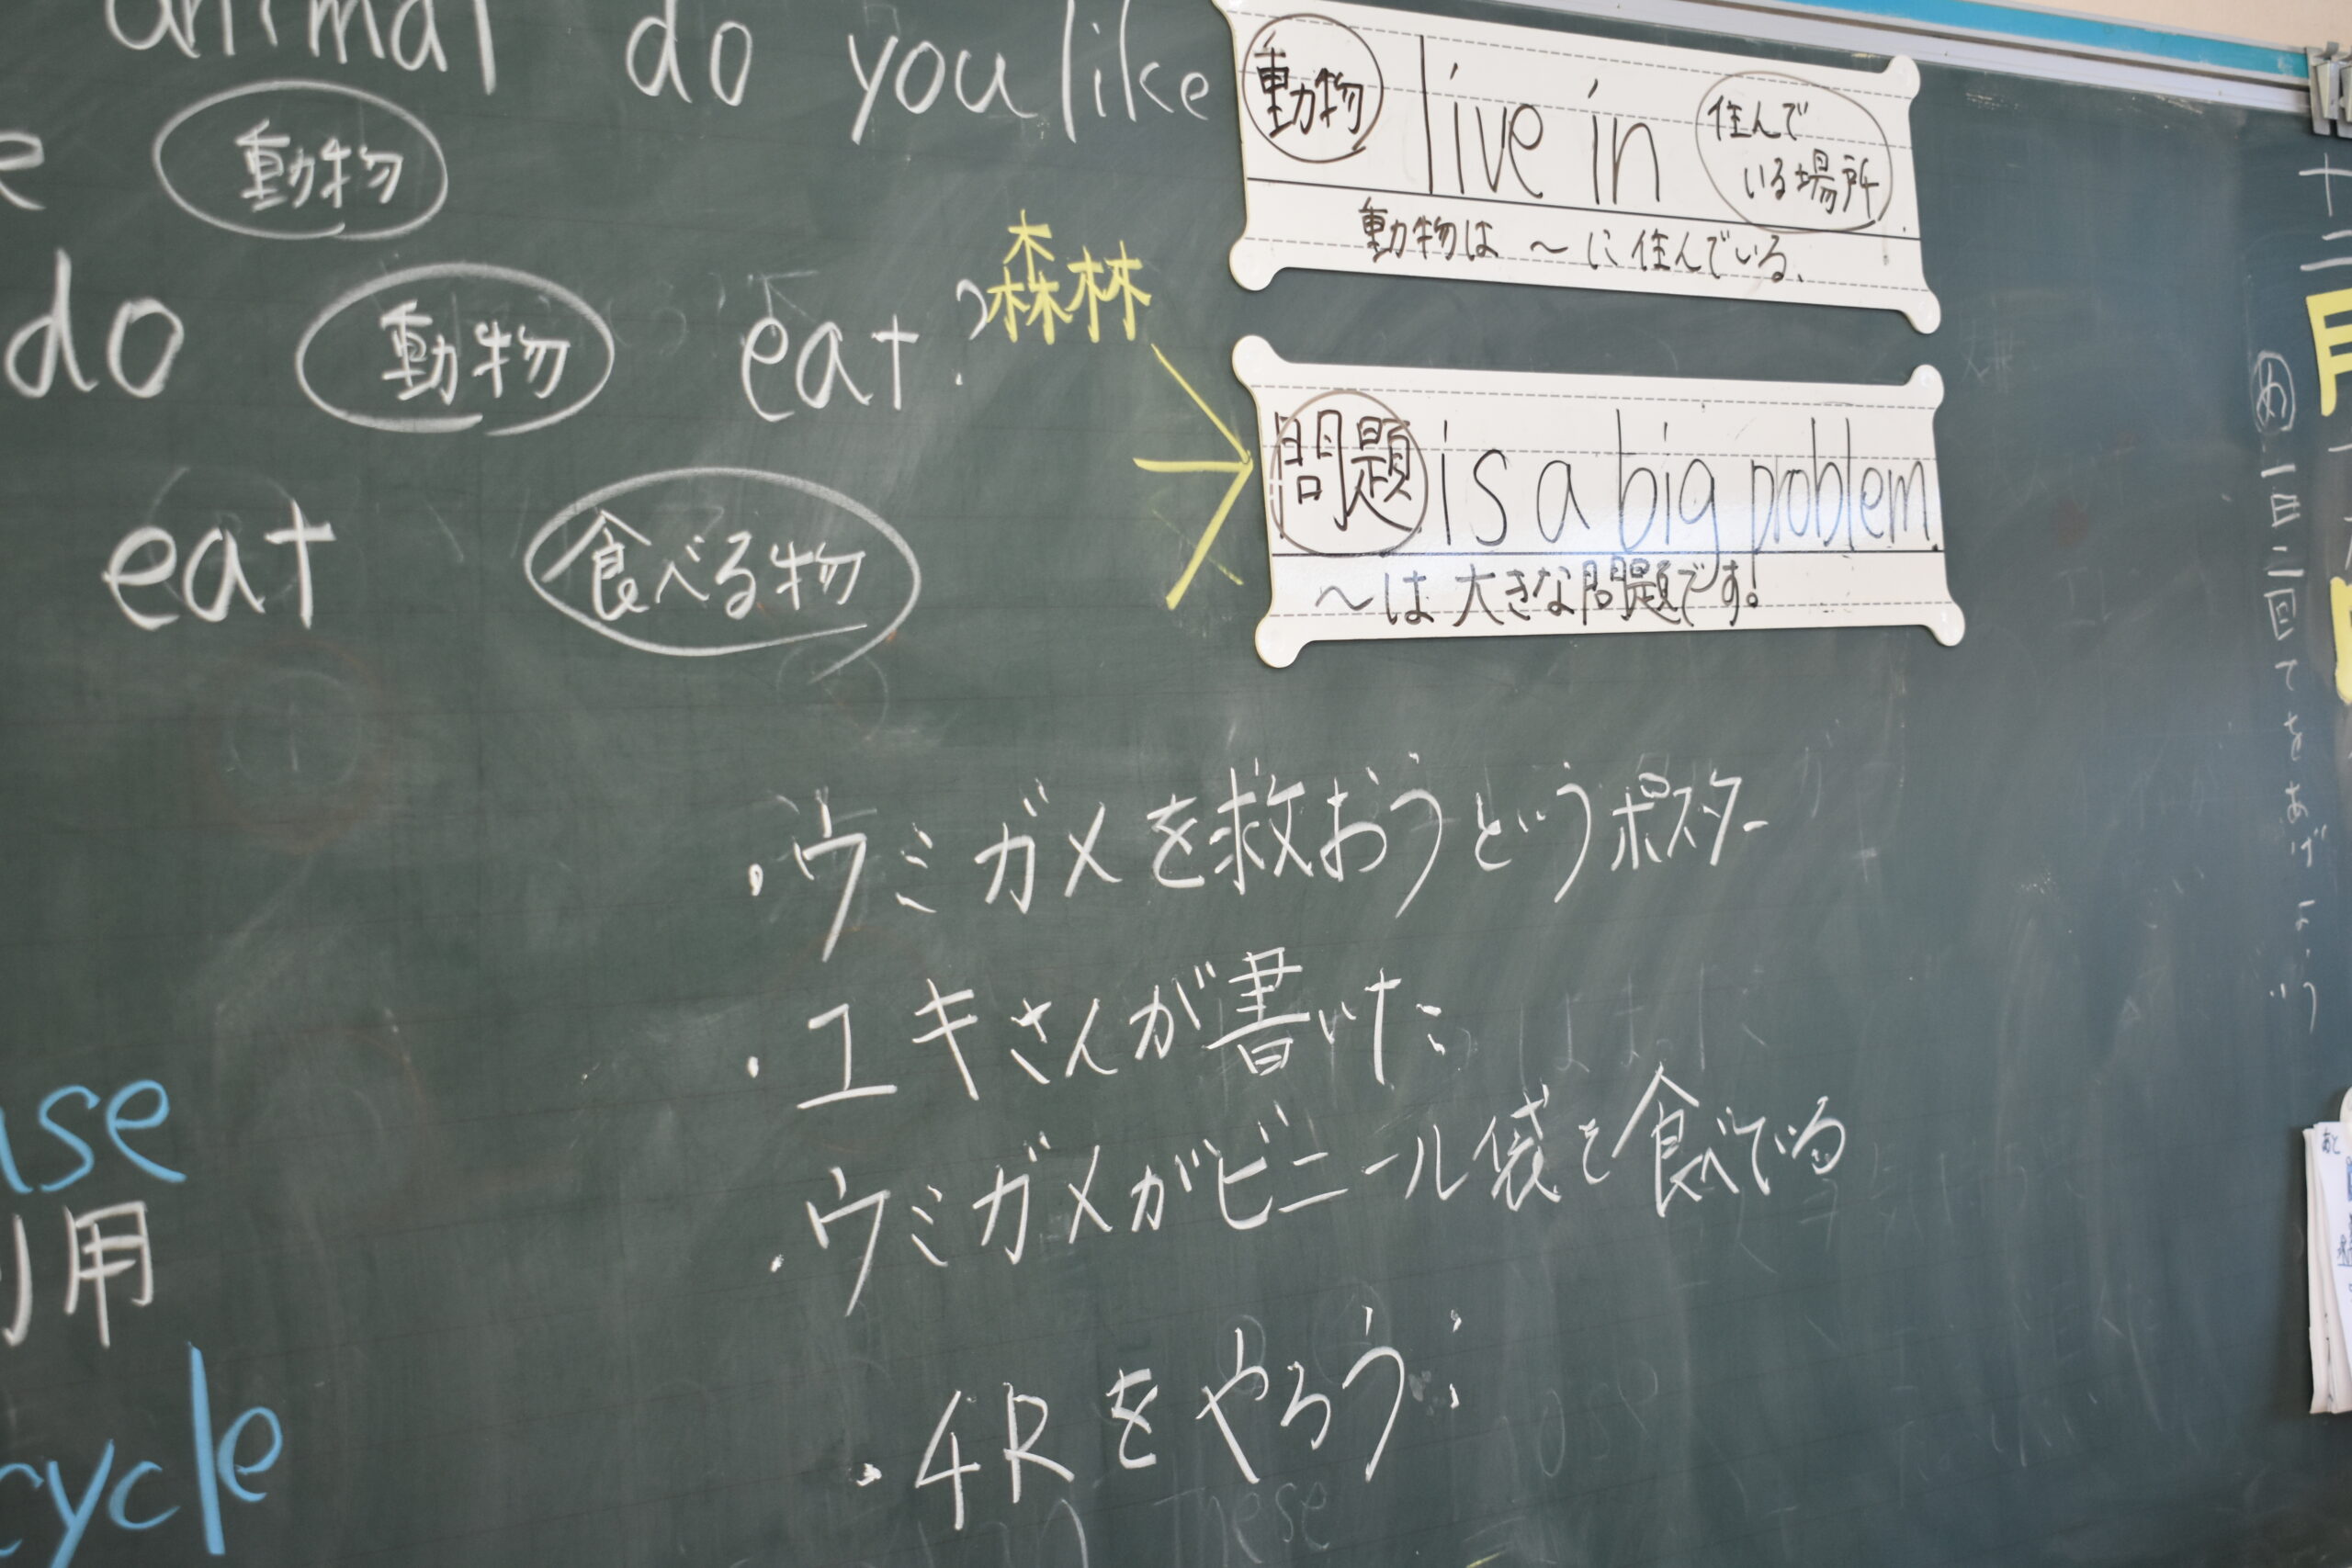 animal do you like
e 動物
do 動物 eat?
eat 食べる物
森林
動物 live in 住んで
いる場所
動物は 〜に住んでいる。
問題 is a big problem.
〜は大きな問題です!
・ウミガメを救おうというポスター
・ユキさんが書いた
・ウミガメがビニール袋を食べている
・4Rをやろう
use
用
cycle
十二
月
め 一日二回てをあげよう
あと